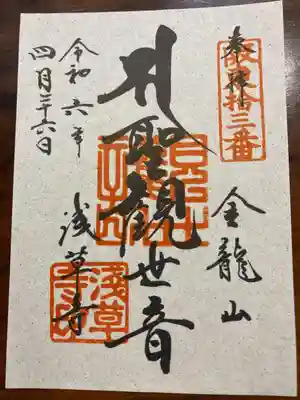 奉拝
坂東拾三番
金龍山
聖観世音
浅草寺
浅草寺印
令和六年
四月二十六日